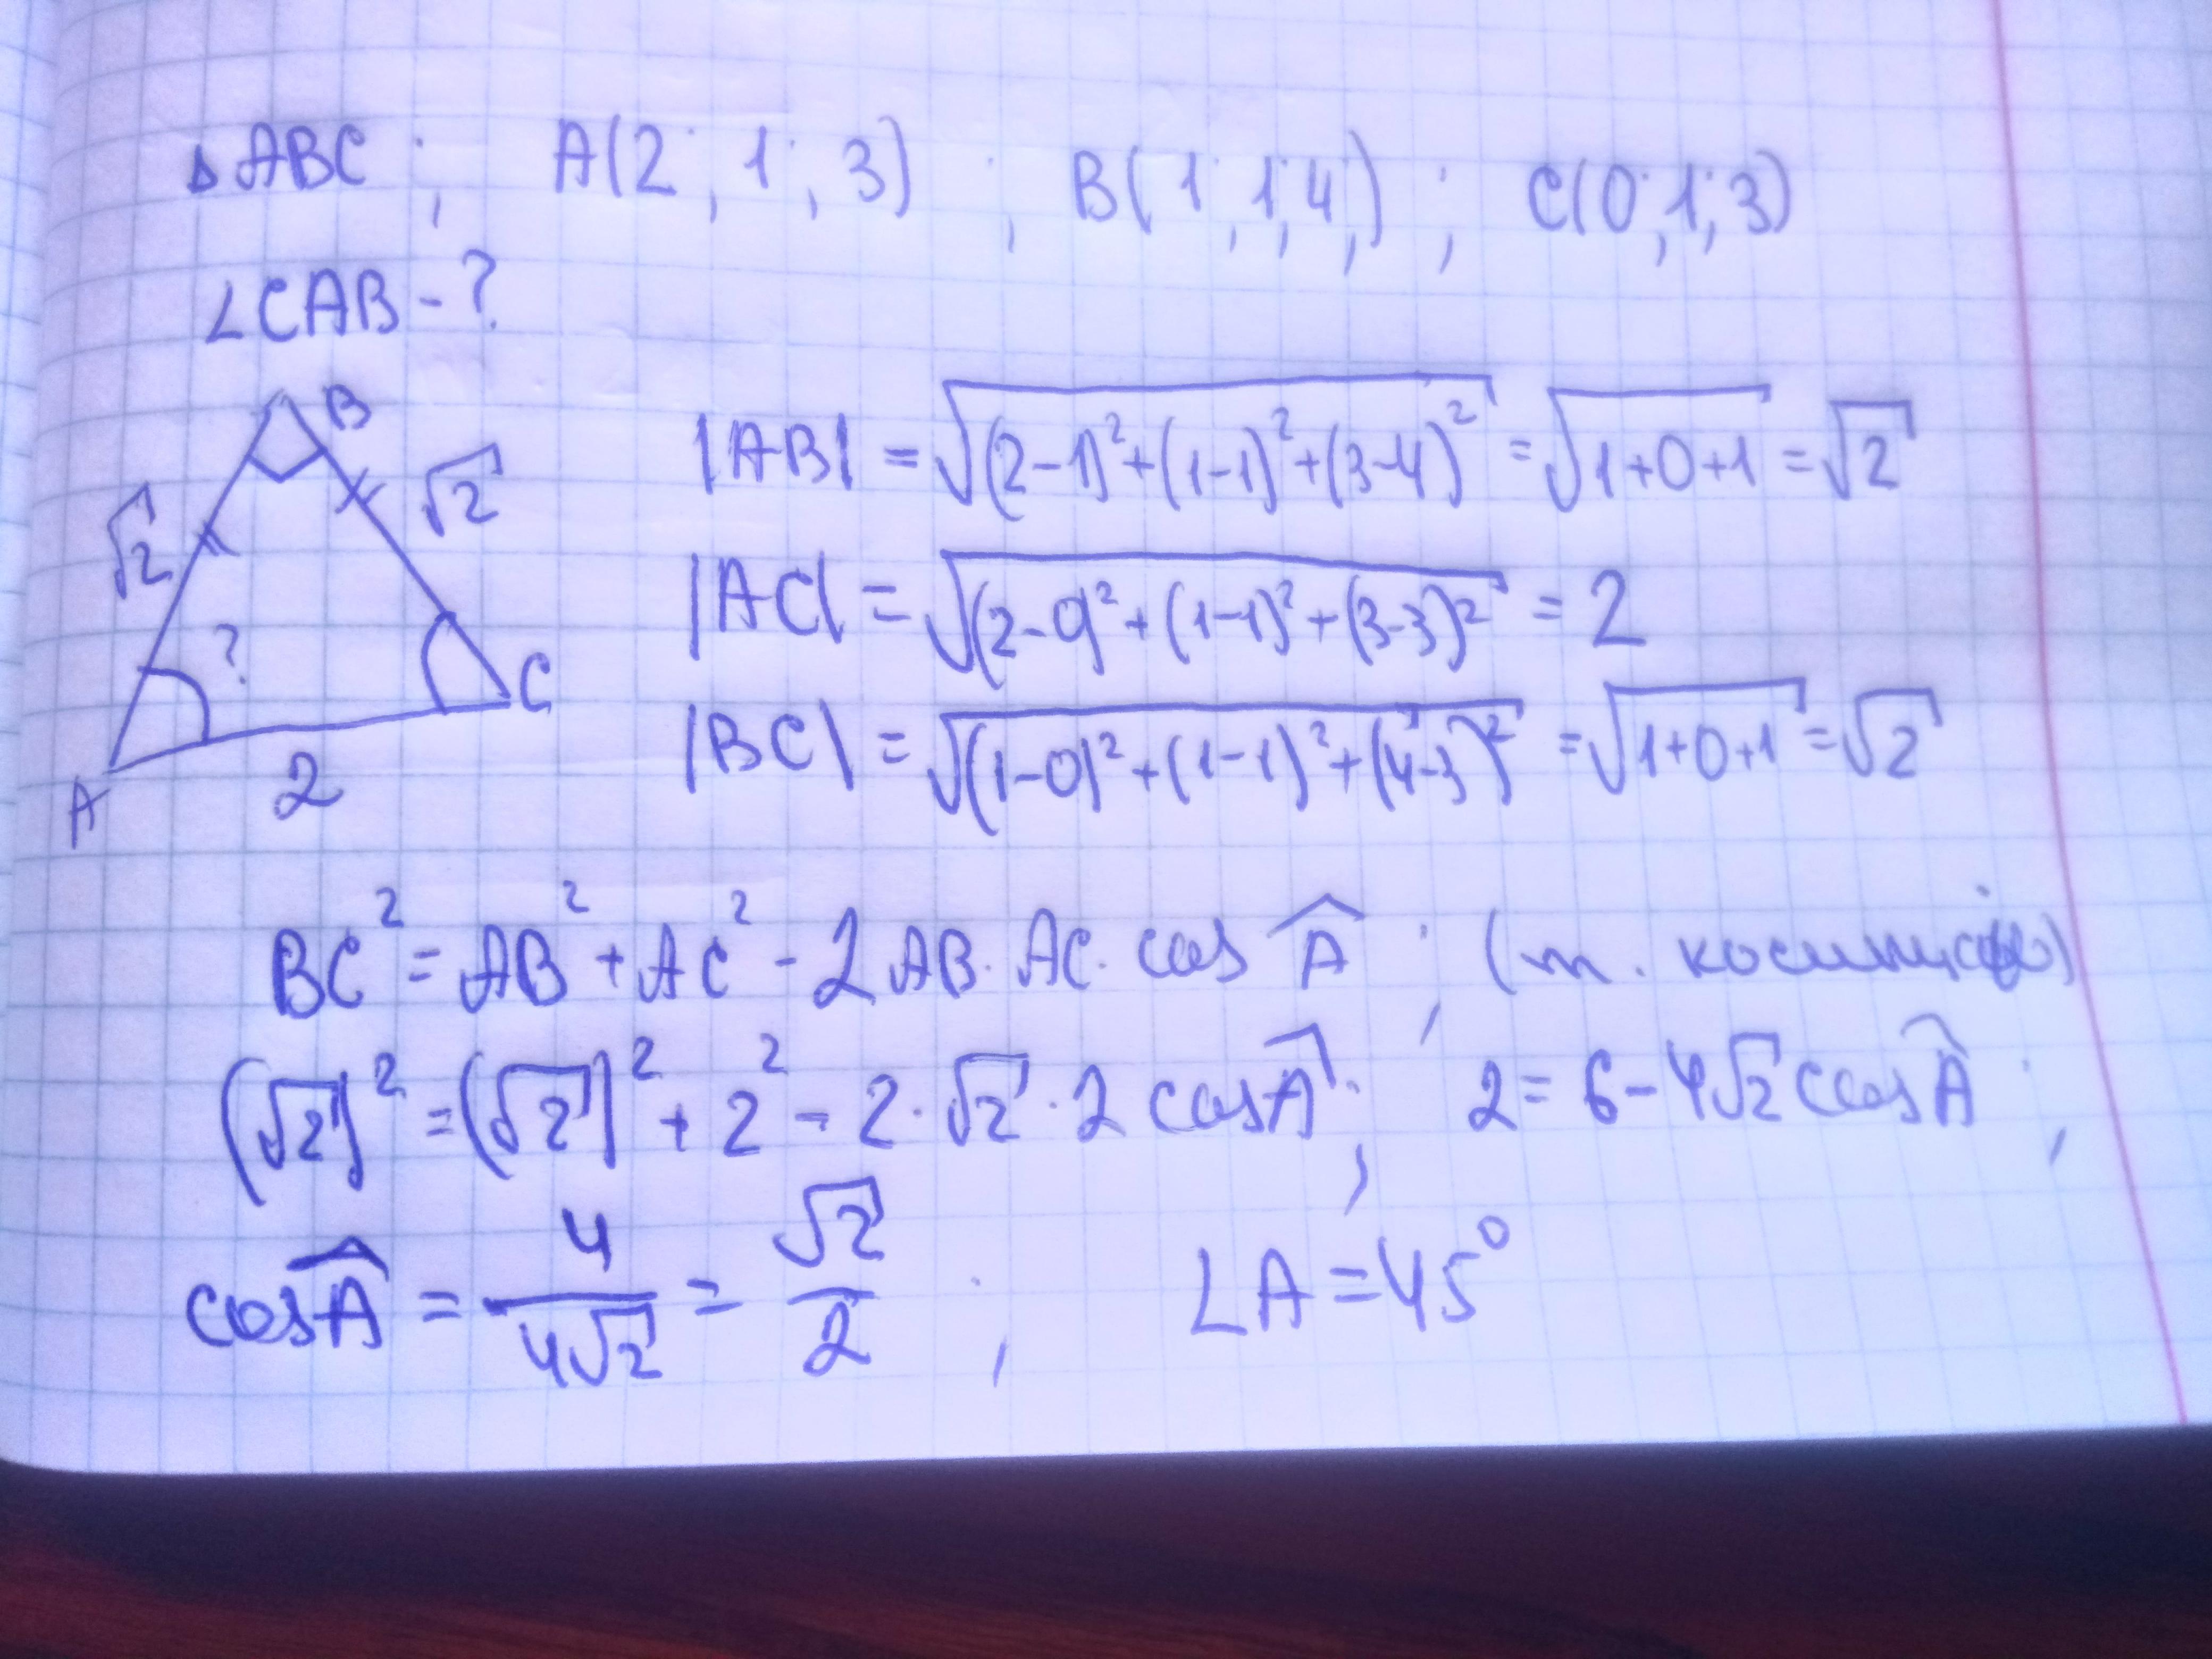 △ABC; A(2; 1; 3); B(1; 1; 4;); C(0; 1; 3)
∠CAB - ?
B
√2
√2
?
C
2
A
|AB| = √((2-1)²+(1-1)²+(3-4)²) = √(1+0+1) = √2
|AC| = √((2-0)²+(1-1)²+(3-3)²) = 2
|BC| = √((1-0)²+(1-1)²+(4-3)²) = √(1+0+1) = √2
BC² = AB² + AC² - 2AB·AC·cos Â; (т. косинусів)
(√2)² = (√2)² + 2² - 2·√2·2 cos Â; 2 = 6 - 4√2 cos Â;
cos Â = 4/(4√2) = √2/2; ∠A = 45°